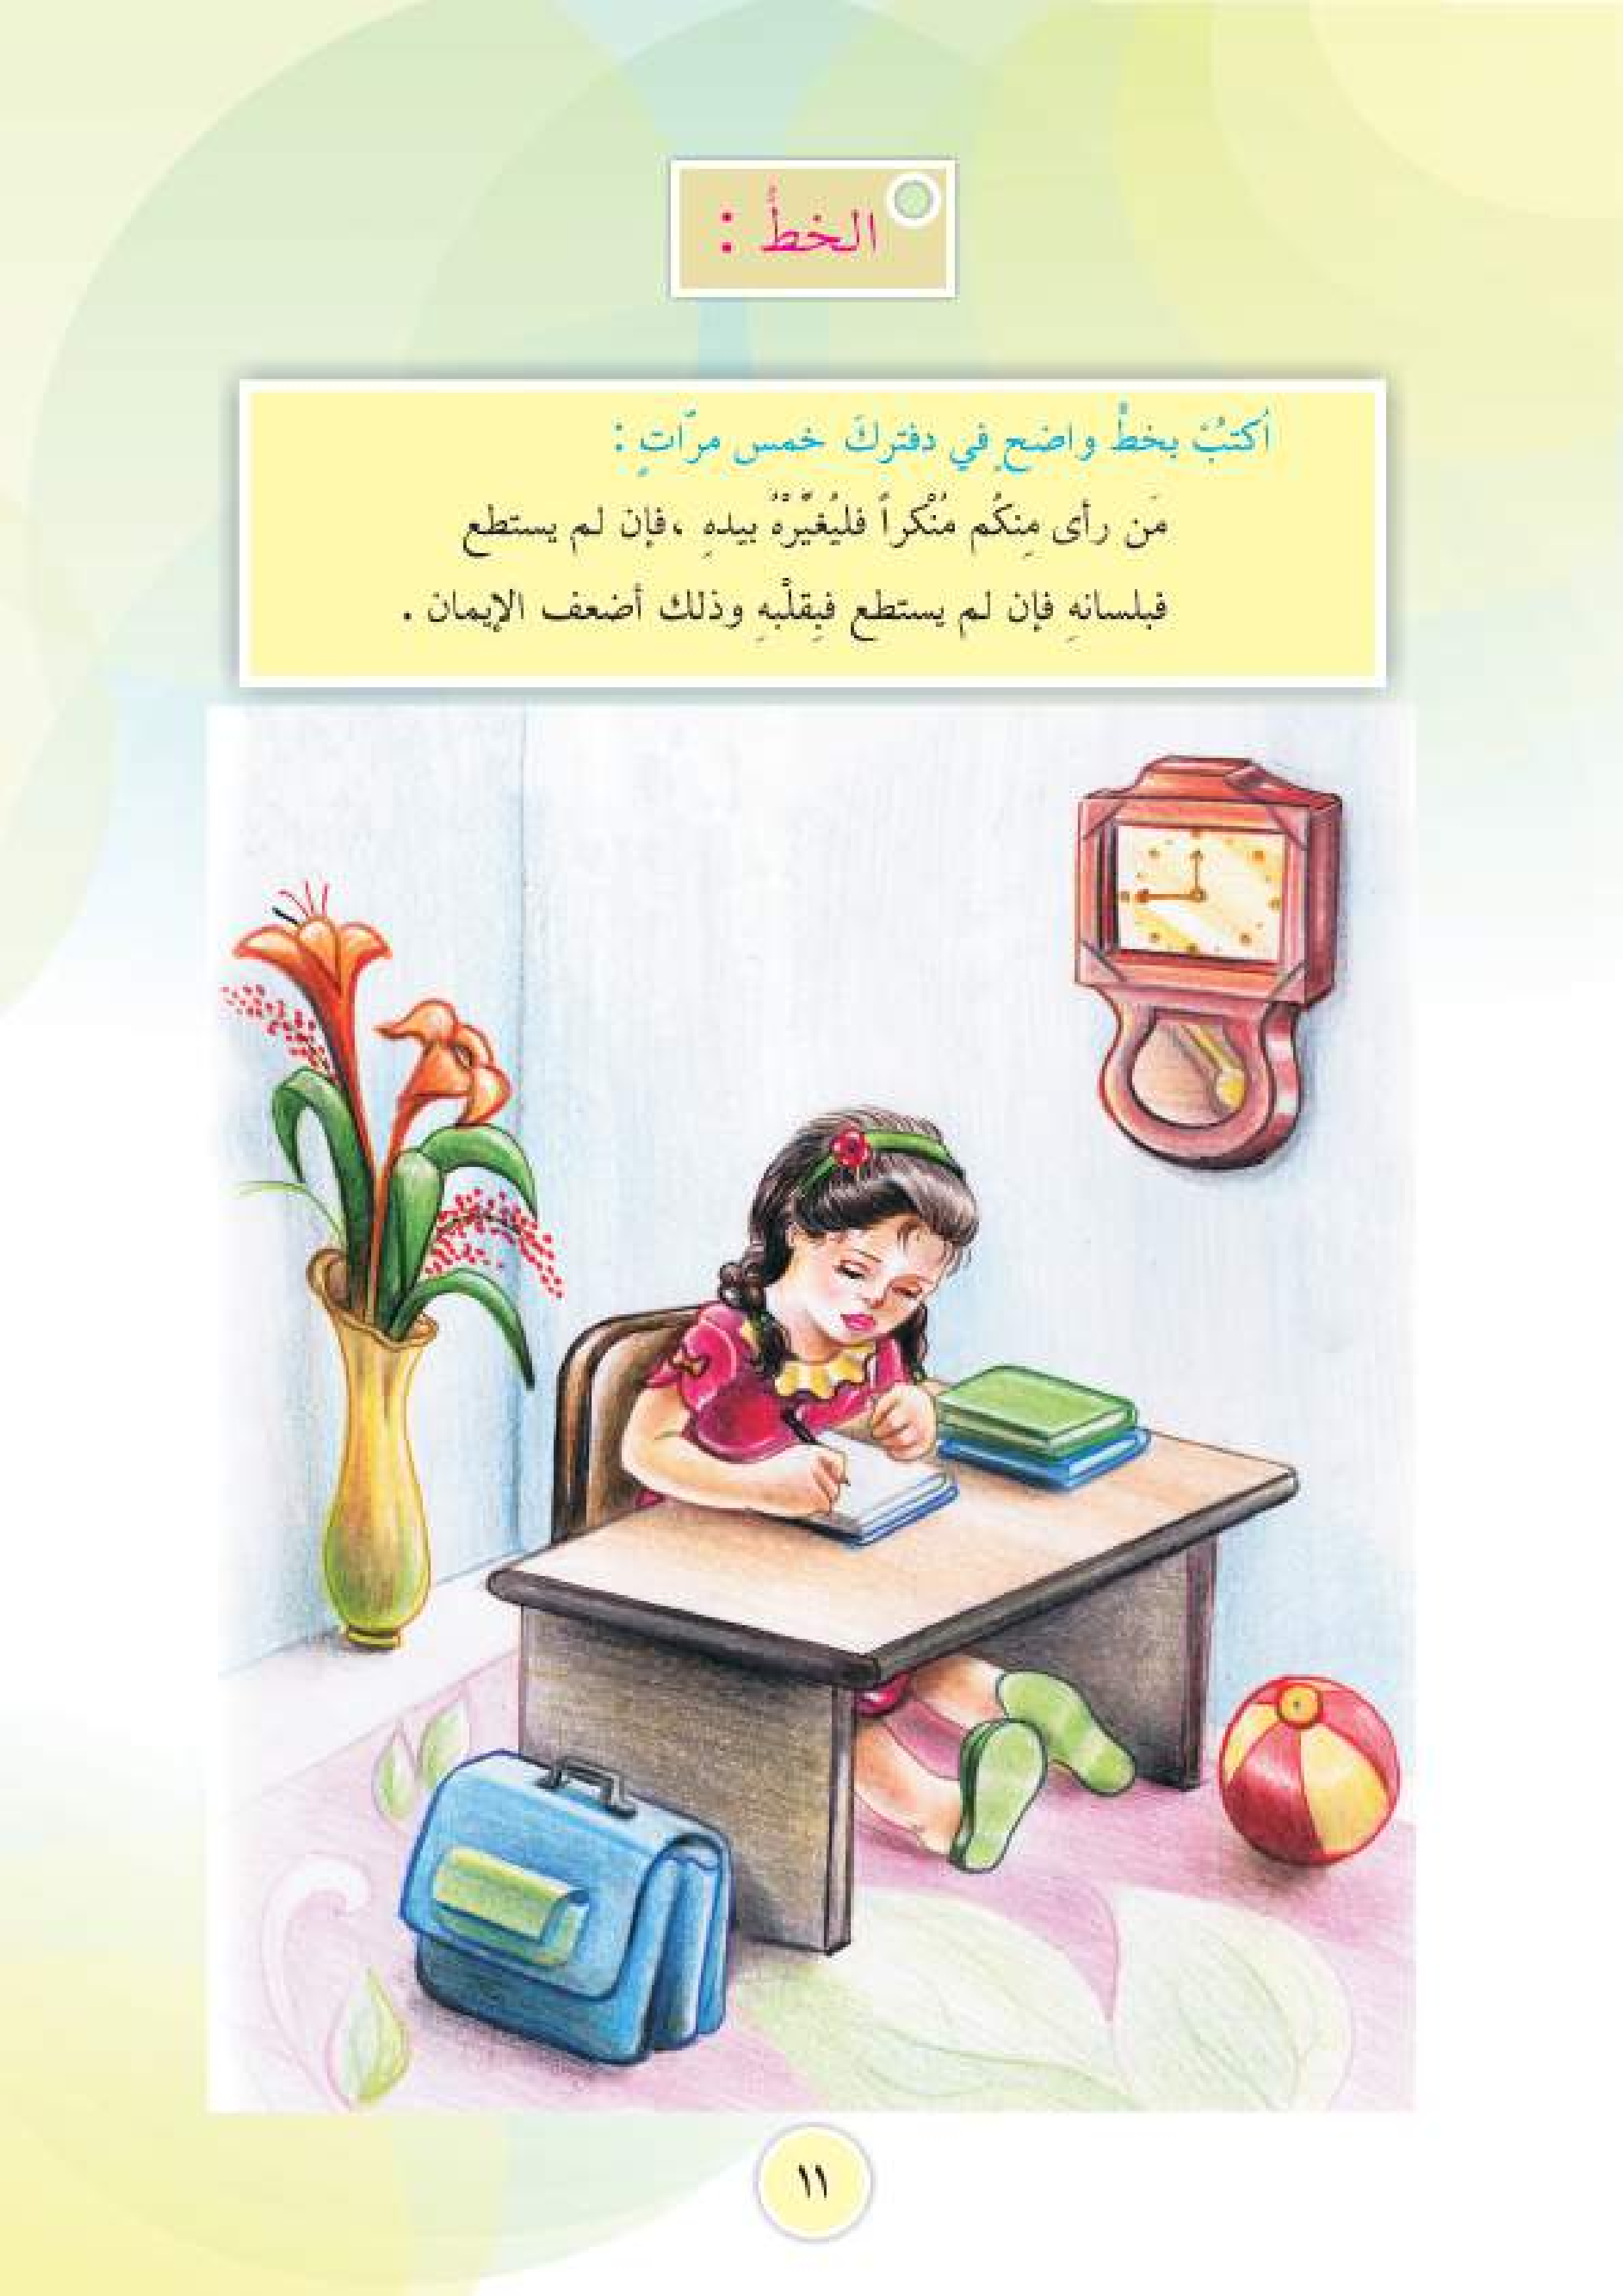 الخطُّ :
أكتبُ بخطٍّ واضحٍ في دفتركَ خمس مرّاتٍ :
مَن رأى مِنكُم مُنْكراً فليُغيِّرْهُ بيدهِ ،فإن لم يستطع
فبلسانهِ فإن لم يستطع فبِقلْبهِ وذلك أضعف الإيمان .
١١